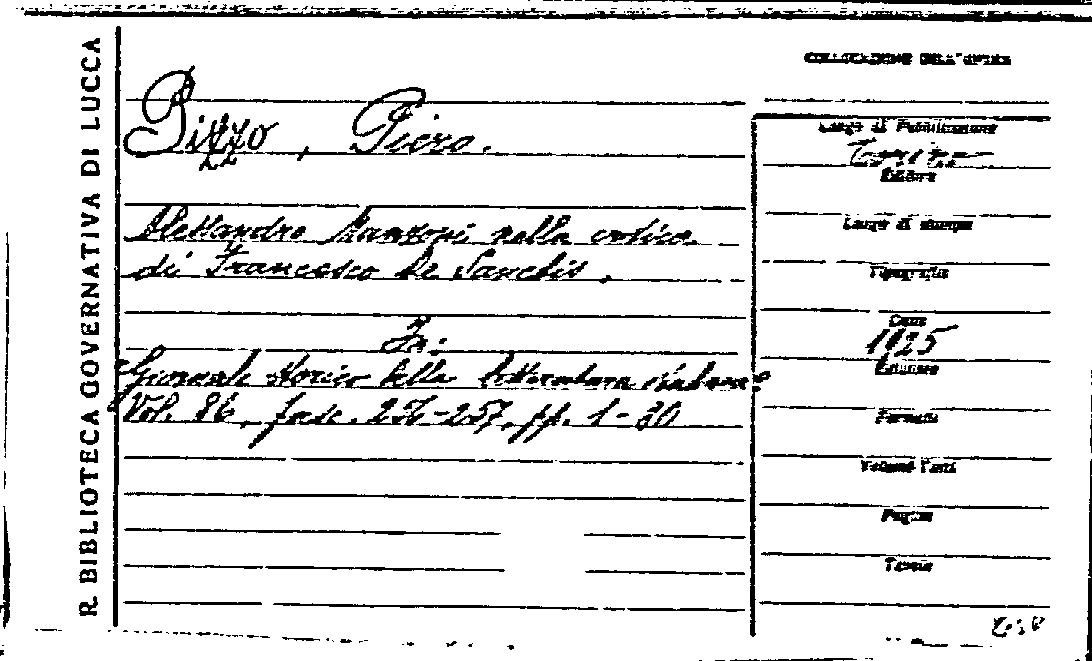 R. BIBLIOTECA GOVERNATIVA DI LUCCA
COLLOCAZIONE DELL'OPERA
Piero.
Alessandro Manzoni nella critica
di Francesco De Sanctis.
In:
"Giornale storico della letteratura italiana"
Vol. 86, fasc. 256-257, pp. 1-30
Luogo di Pubblicazione
Torino
Editore
Luogo di stampa
Tipografia
Data
1925
Edizione
Formato
Volumi
Pagine
Tavole